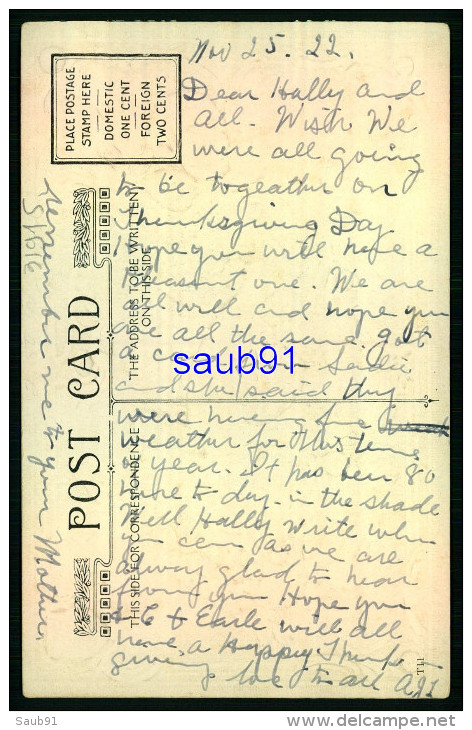 Nov 25. 22.
Dear Hally and
All. Wish We
were all going
to be togeather on
Thanksgiving Day
I hope you will have a
pleasant one. We are
all well and hope you
are all the same. got
a card from Sadie
and she said they
were having fine
weather for this time
of year. It has been 80
here to day. in the shade
Well Hally Write when
you can as we are
alway glad to hear
from you Hope you
& Earle will all
have a Happy Thanks
giving love to all
remember me to your Mother.
PLACE POSTAGE
STAMP HERE
DOMESTIC
ONE CENT
FOREIGN
TWO CENTS
POST CARD
THE ADDRESS TO BE WRITTEN
ON THIS SIDE
THIS SIDE FOR CORRESPONDENCE
T11
saub91
Saub91
www.delcampe.net